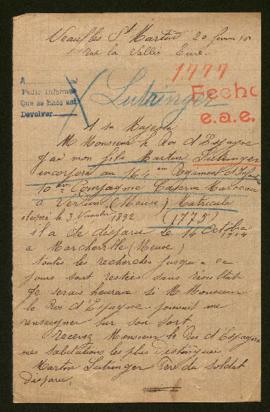 Neuilles St Martin 20 juin 15
rue la Vallée Eure
1777
A
Pedir informe
Que se hizo est
Devolver
Lutringer
Fecho
e.a.e.
A sa Majesté
M Monsieur le Roi d'Espagne
que mon fils Martin Lutringer
incorporé au 164 eme Regiment d'Inf
10 em Compagnie Caserne
à Verdun (Meuse) Matricule
1892 (1775)
et a été disparu le 14 Octobre
1914
à Marcheville (Meuse)
toutes les recherches jusqu'a ce
jours sont restées sans résultat
Je serais heureux si M Monsieur
le Roi d'Espagne pouvait me
renseigner sur son sort
Recevez Monsieur le Roi d'Espagne
mes salutations les plus distinguées
Martin Lutringer Père du soldat
disparu